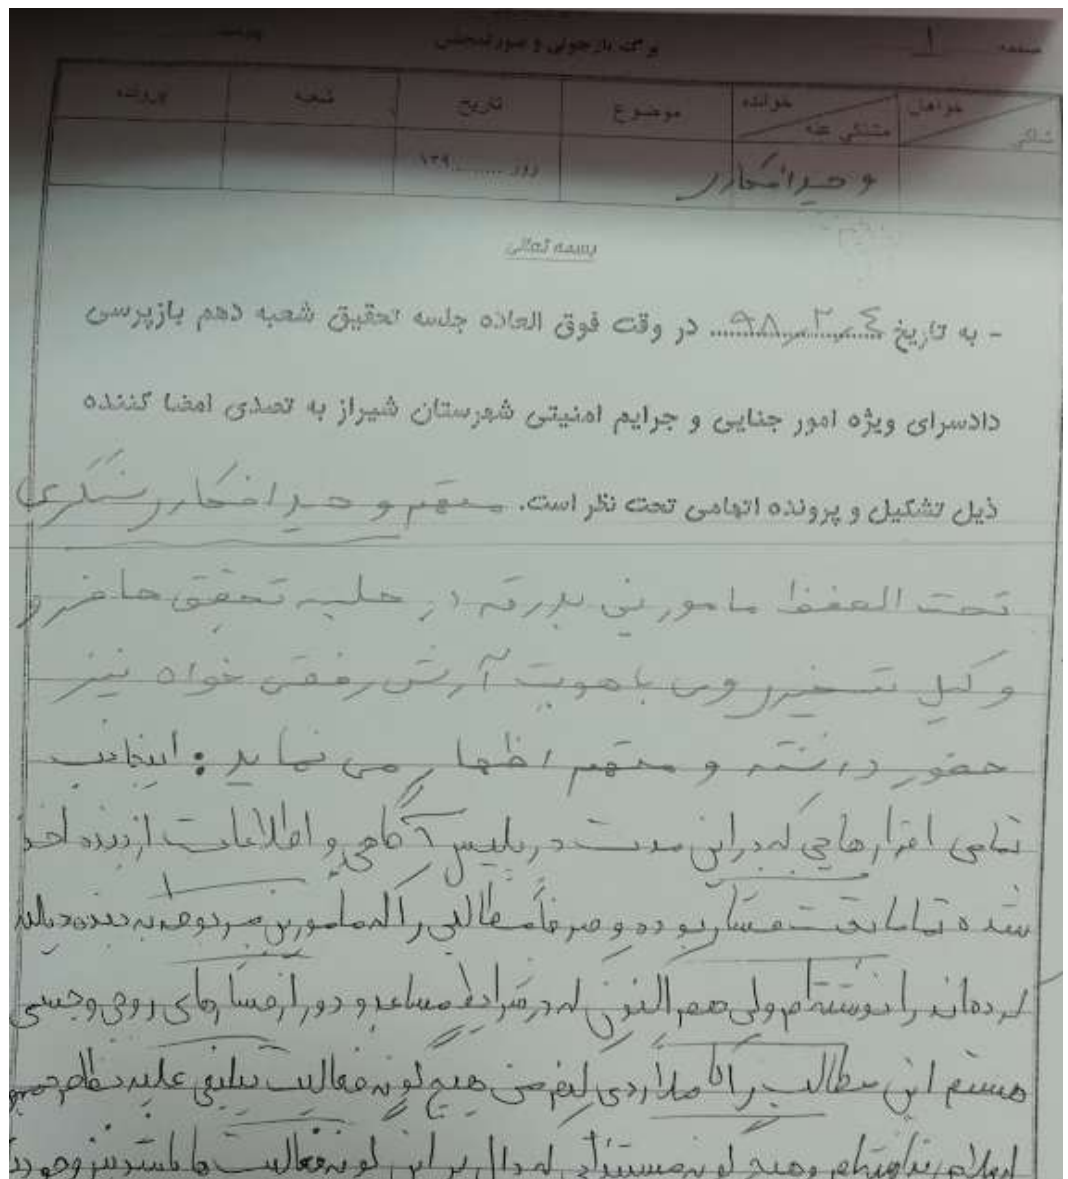 صفحه ۱ برگ بازجوئی و صورتمجلس
خواهان شاکی خوانده مشتکی عنه موضوع تاریخ شعبه پرونده
وحید افکاری روز ........ ۱۳۹
بسمه تعالی
- به تاریخ ۹۸،۲،٤ در وقت فوق العاده جلسه تحقیق شعبه دهم بازپرسی
دادسرای ویژه امور جنایی و جرایم امنیتی شهرستان شیراز به تصدی امضا کننده
ذیل تشکیل و پرونده اتهامی تحت نظر است. متهم وحید افکاری سنگری
تحت الحفظ مامورین بدرقه در جلسه تحقیق حاضر و
وکیل تسخیری وی با هویت آرش رفقی خواه نیز
حضور داشته و متهم اظهار می نماید: اینجانب
تمامی اقرارهایی که در این مدت در پلیس آگاهی و اطلاعات از بنده اخذ
شده تماما تحت فشار بوده و صرفاً مطالبی را که مامورین مربوطه به بنده دیکته
کرده‌اند را نوشته‌ام ولی هم اکنون که در شرایط مساعد و دور از فشارهای روحی و جسمی
هستم این مطالب را کاملاً رد می کنم من هیچ گونه فعالیت تبلیغی علیه نظام جمهو
اسلامی نداشته‌ام و هیچ گونه مستنداتی که دال بر این گونه فعالیت ها باشد نیز وجود